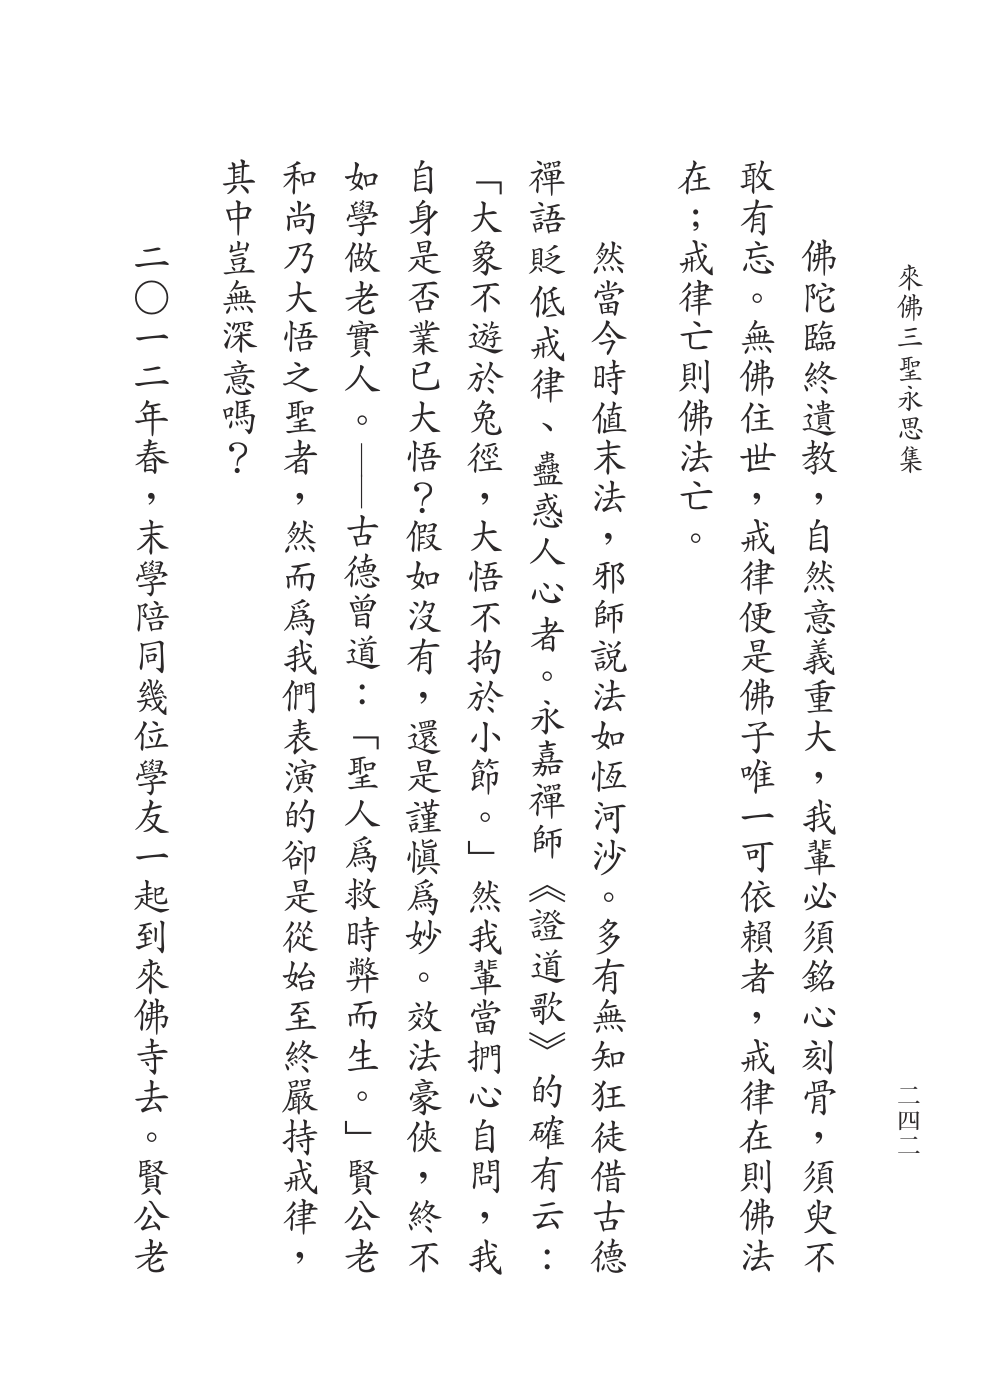 來佛三聖永思集
二四二
佛陀臨終遺教，自然意義重大，我輩必須銘心刻骨，須臾不
敢有忘。無佛住世，戒律便是佛子唯一可依賴者，戒律在則佛法
在；戒律亡則佛法亡。
然當今時值末法，邪師説法如恆河沙。多有無知狂徒借古德
禪語貶低戒律、蠱惑人心者。永嘉禪師《證道歌》的確有云：
「大象不遊於兔徑，大悟不拘於小節。」然我輩當捫心自問，我
自身是否業已大悟？假如沒有，還是謹慎爲妙。效法豪俠，終不
如學做老實人。——古德曾道：「聖人爲救時弊而生。」賢公老
和尚乃大悟之聖者，然而爲我們表演的卻是從始至終嚴持戒律，
其中豈無深意嗎？
二〇一二年春，末學陪同幾位學友一起到來佛寺去。賢公老